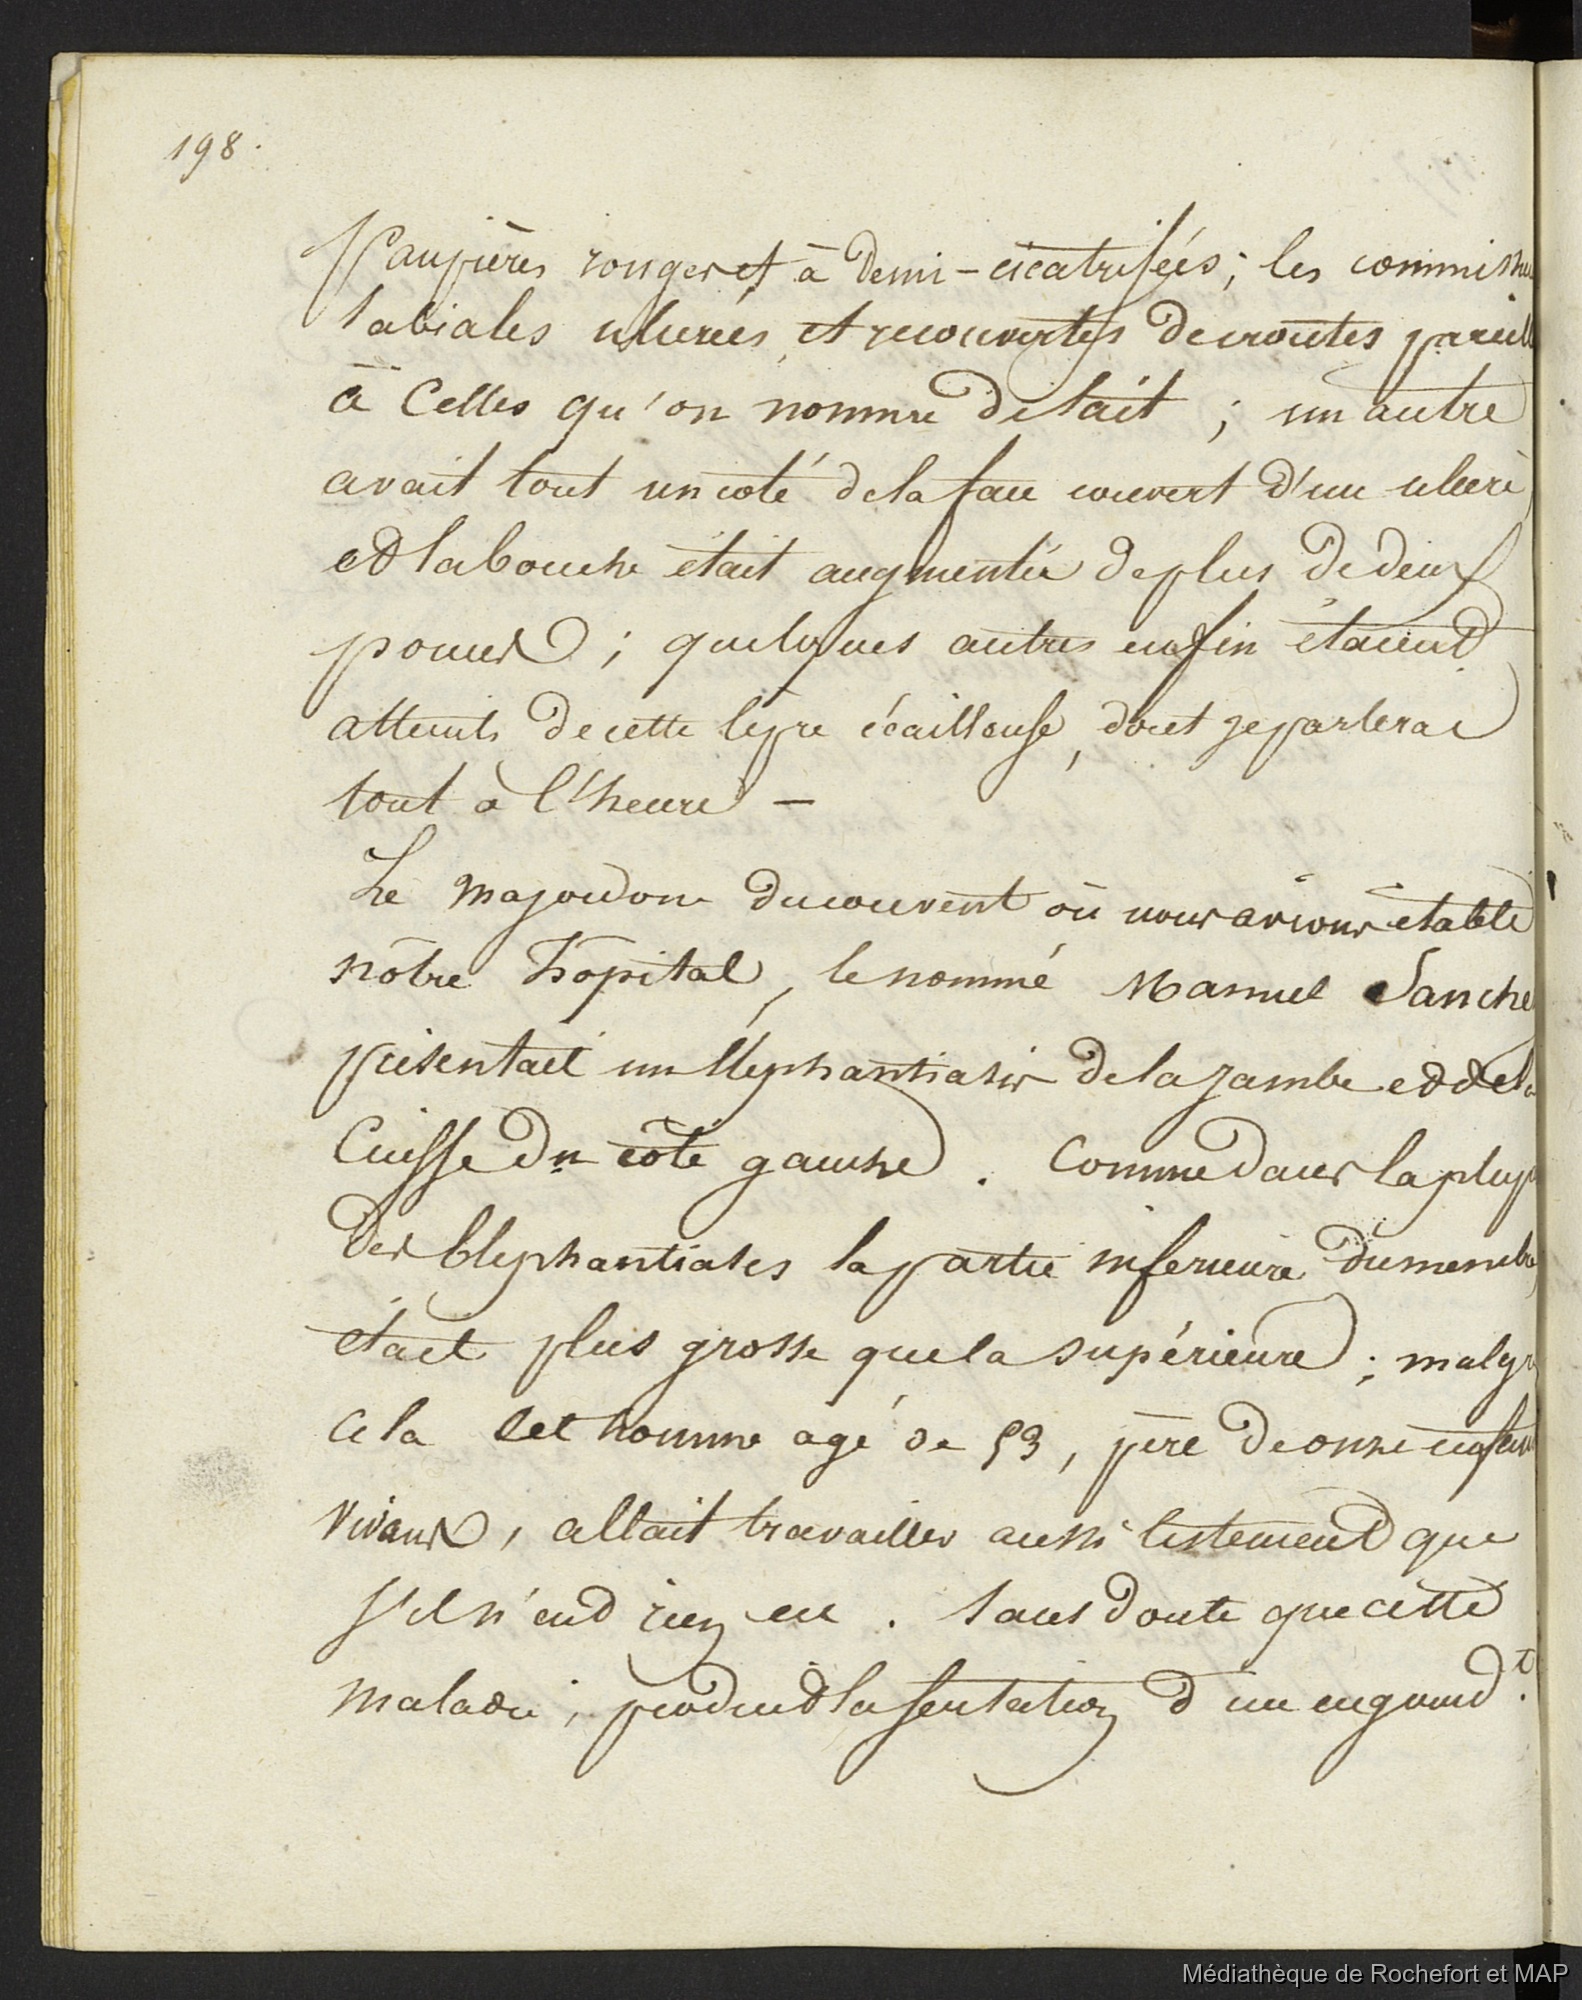 198.
Paupières rouges et à demi-cicatrisées; les commissu
labiales ulcerées et recouvertes de croutes pareill
à celles qu'on nomme de lait; un autre
avait tout un coté de la face couvert d'un ulcère
et la bouche était augmentée de plus de deux
pouces; quelques autres enfin étaient
atteints de cette lèpre écailleuse, dont je parlerai
tout à l'heure –
Le majordome du couvent où nous avions établi
nôtre hôpital, le nommé Manuel Sanche
présentait un Elephantiasis de la jambe et de la
Cuisse du côté gauche. Comme dans la plup
des Elephantiases la partie inferieure du membre
était plus grosse que la supérieure; malgr
cela cet homme agé de 53, père de onze enfan
vivans, allait travailler aussi lestement que
s'il n'eut rien eu. Sans doute que cette
maladie, produit la sensation d'un engourd.t
Médiathèque de Rochefort et MAP